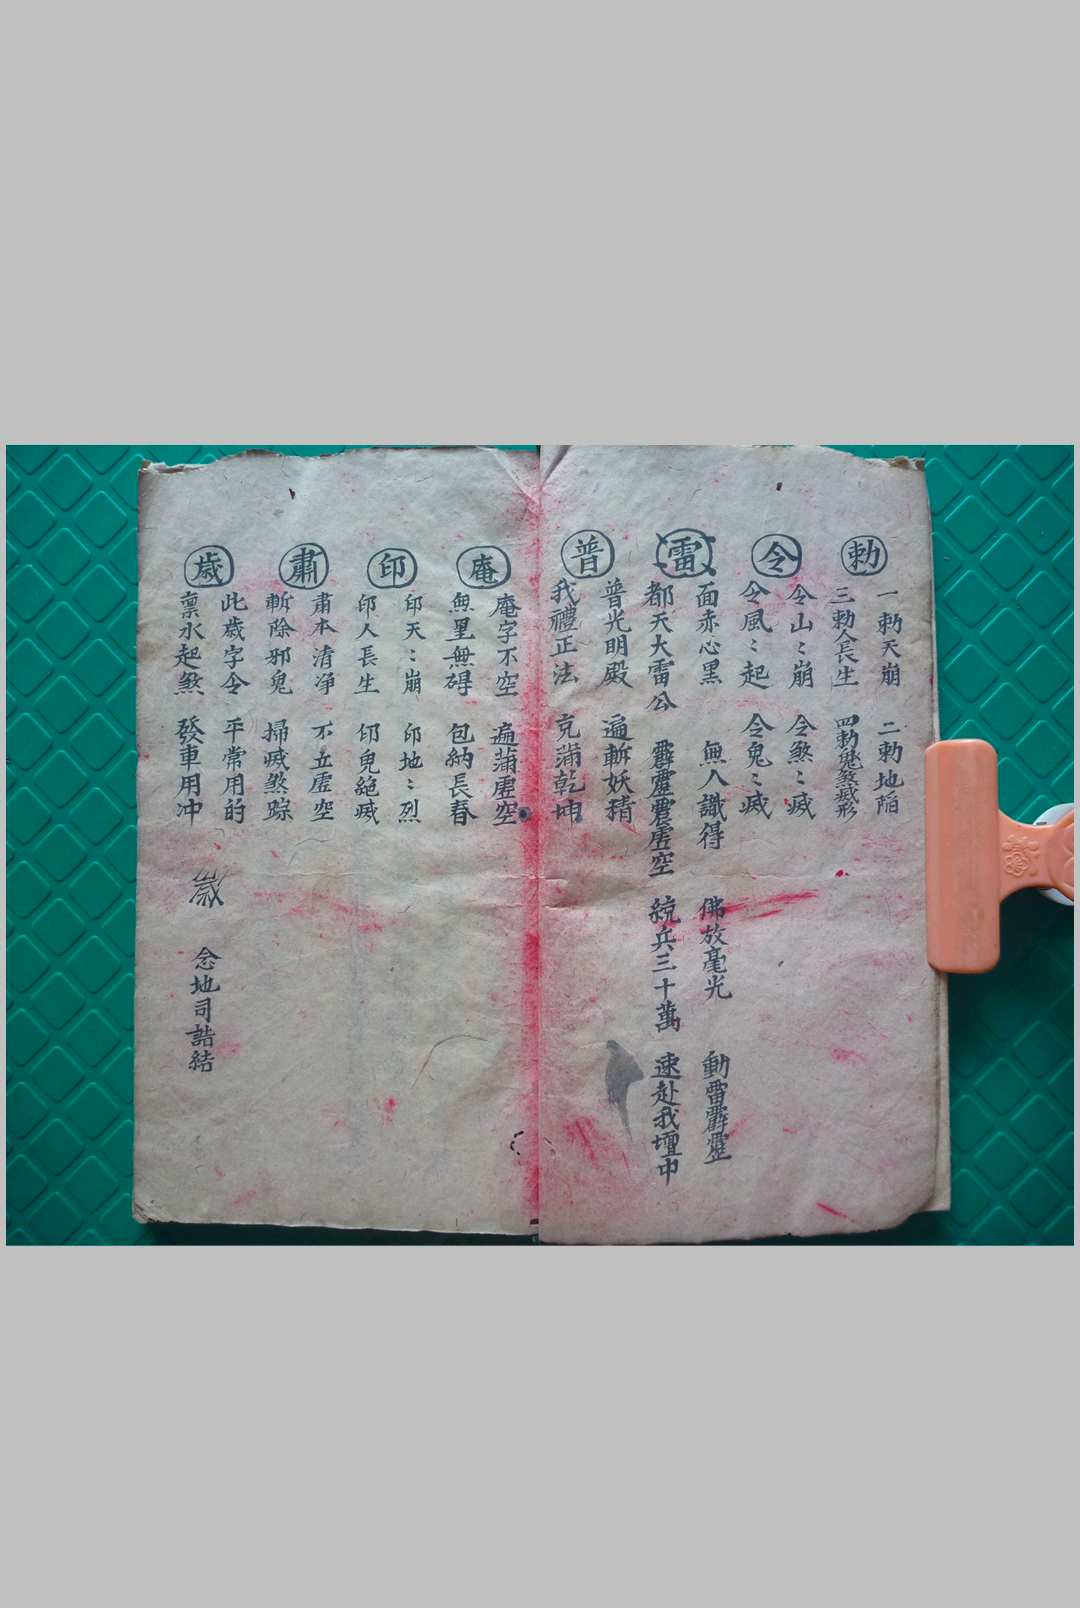 勅
一勅天崩 二勅地陷
三勅人長生 四勅鬼煞滅形
令
令山〻崩 令煞〻滅
令風〻起 令鬼〻滅
雷
面赤心黑 無人識得 佛放毫光 動雷霹靂
都天大雷公 霹靂震虛空 統兵三十萬 速赴我壇中
普
普光明殿 遍斬妖精
我禮正法 充滿乾坤
庵
庵字不空 遍蒲虛空
無里無碍 包納長春
印
印天〻崩 印地〻烈
印人長生 印鬼絕滅
肅
肅本清净 不立虛空
斬除邪鬼 掃滅煞踪
歲
此歲字令 平常用的
禀水起煞 發車用冲 歲 念地司誥結